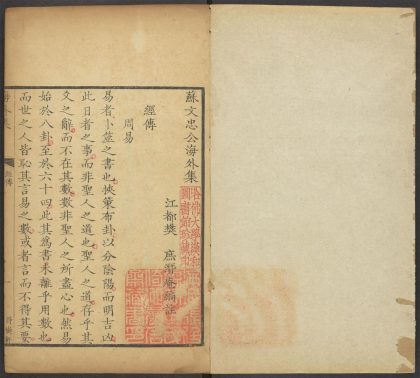 蘇文忠公海外集
江都樊庶潛庵編注
經傳
周易
易者卜筮之書也挾策布卦以分陰陽而明吉凶
此日者之事而非聖人之道也聖人之道存乎其
爻之辭而不在其數數非聖人之所盡心也然易
始於八卦至於六十四此其為書未離乎用數也
而世之人皆恥其言易之數或者言而不得其要
經傳